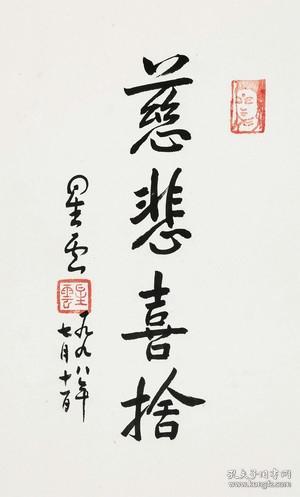 慈悲喜捨
星云
星雲
一九九八年
七月十一日
孔夫子旧书网